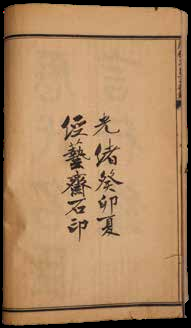 光緒癸卯夏
經藝齋石印